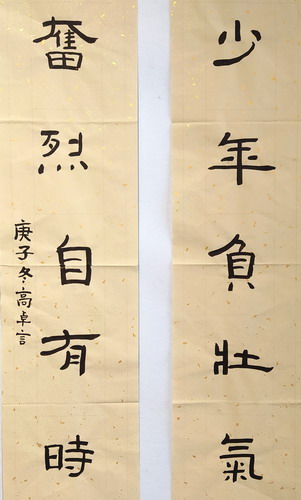 少年負壯氣
奮烈自有時
庚子冬高卓言